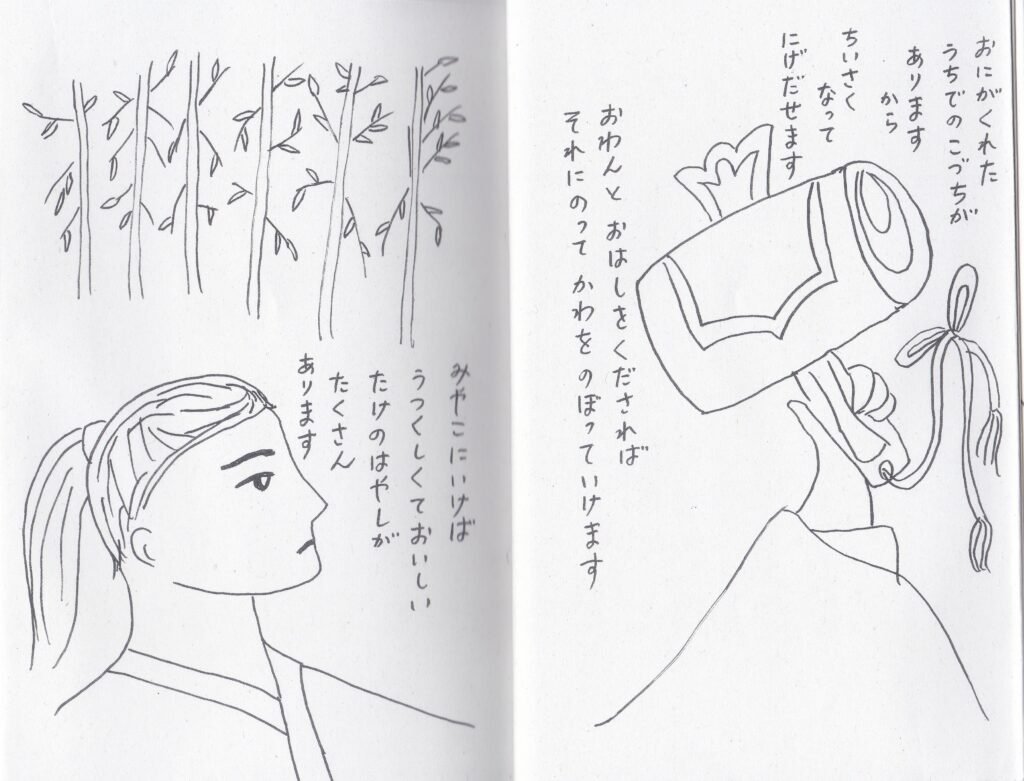 おにがくれた
うちでのこづちが
あります
から
ちいさく
なって
にげだせます
おわんと おはしをくだされば
それにのって かわを のぼって いけます
みやこにいけば
うつくしくておいしい
たけのはやしが
たくさん
あります